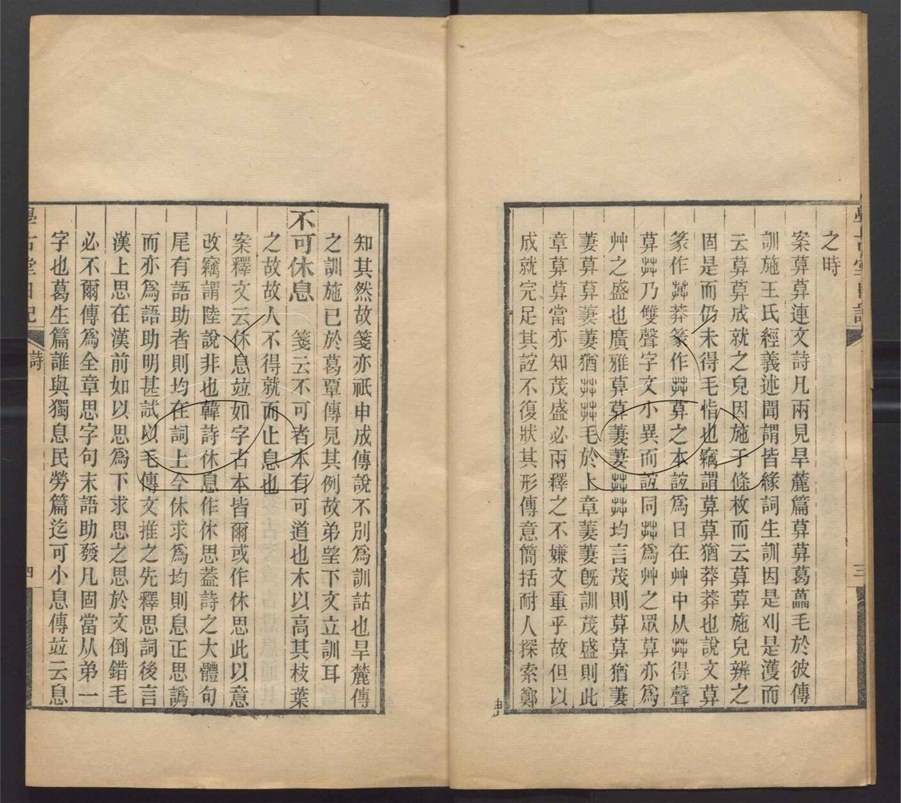 之時
案萛萛連文詩凡兩見旱麓篇萛萛葛藟毛於彼傳
訓施王氏經義述聞謂皆緣詞生訓因是刈是濩而
云萛萛成就之皃因施于條枚而云萛萛施皃辨之
固是而仍未得毛恉也竊謂萛萛猶莽莽也說文萛
篆作茻莽篆作茻萛之本誼爲日在茻中从茻得聲
萛茻乃雙聲字文小異而誼同茻爲艸之眾萛亦爲
艸之盛也廣雅萛萛萋萋茻茻均言茂則萛萛猶萋
萋萛萛萋萋猶茻茻毛於上章萋萋旣訓茂盛則此
章萛萛當亦知茂盛必兩釋之不嫌文重乎故但以
成就完足其誼不復狀其形傳意簡括耐人探索鄭
學古堂日記
三
知其然故箋亦祇申成傳說不別爲訓詁也旱麓傳
之訓施已於葛覃傳見其例故弟望下文立訓耳
不可休息 箋云不可者本有可道也木以高其枝葉
之故故人不得就而止息也
案釋文云休息竝如字古本皆爾或作休思此以意
改竊謂陸說非也韓詩休息作休思蓋詩之大體句
尾有語助者則均在詞上今休求爲均則息正思譌
而亦爲語助明甚試以毛傳文推之先釋思詞後言
漢上思在漢前如以思爲下求思之思於文倒錯毛
必不爾傳爲全章思字句末語助發凡固當从弟一
字也葛生篇誰與獨息民勞篇迄可小息傳竝云息
學古堂日記
詩
四